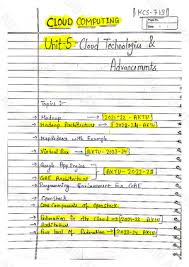 [MCS-713]
CLOUD COMPUTING
Unit-5 Cloud Technologies &
Advancements
Topics :-
→ Hadoop → [2021-22 - AKTU]
→ Hadoop Architecture → [2023-24 AKTU]
→ MapReduce with Example
→ Virtual Box → [AKTU - 2023-24]
→ Google App Engine
→ GAE Architecture [AKTU - 2022-23]
→ Programming Environment For GAE
→ OpenStack
→ Core Components of OpenStack
→ Federation in the Cloud → 2021-22 AKTU
→ Four level of Federation → 2023-24 AKTU